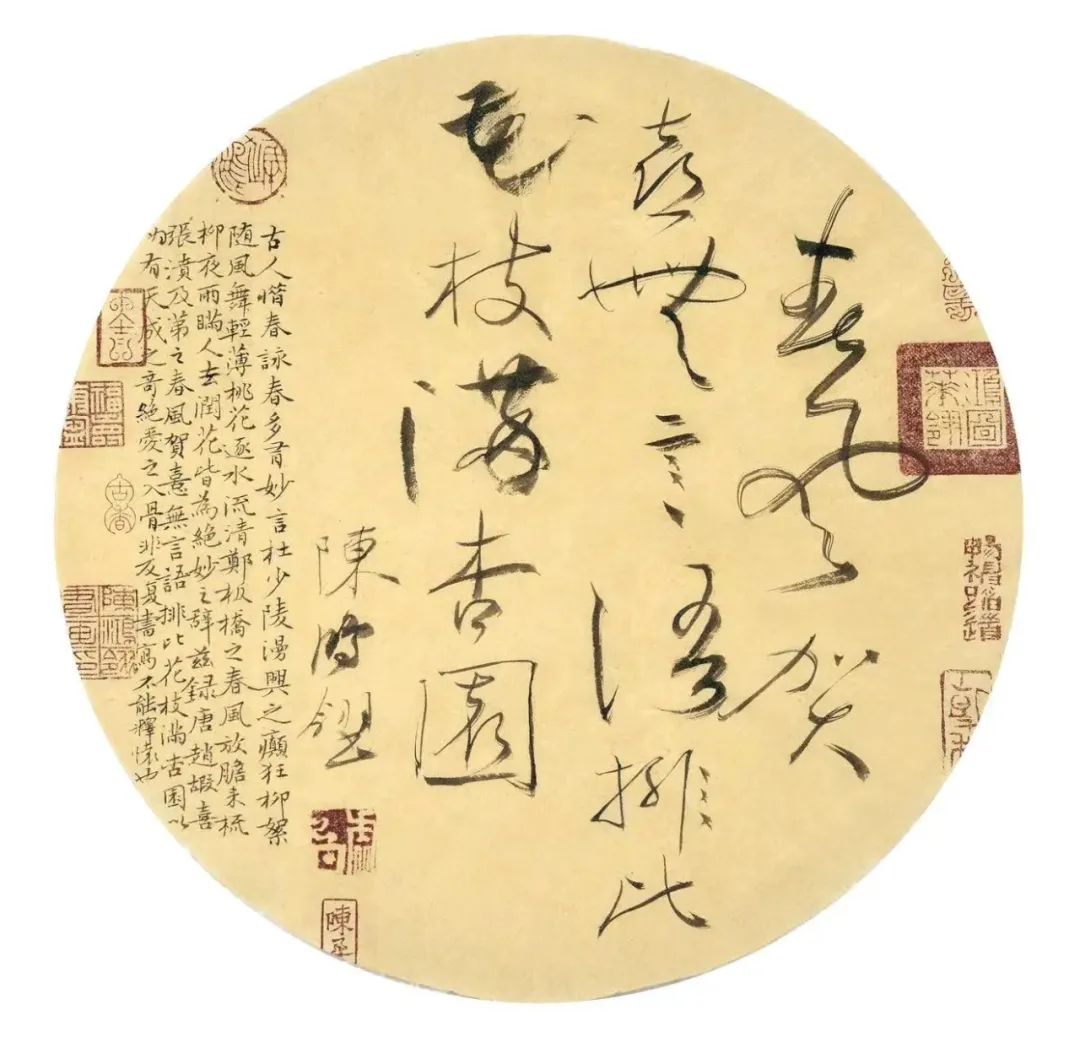 春風賀
喜無言語排比
花枝滿杏園
陳
古人惜春詠春多有妙言杜少陵漫興之癲狂柳絮
随風舞輕薄桃花逐水流清鄭板橋之春風放膽來梳
柳夜雨瞞人去潤花皆為絕妙之辭茲録唐趙嘏喜
張濆及第之春風賀喜無言語排比花枝滿杏園以
為有天成之奇絕愛之入骨非反复書寫不能釋懷也
古香